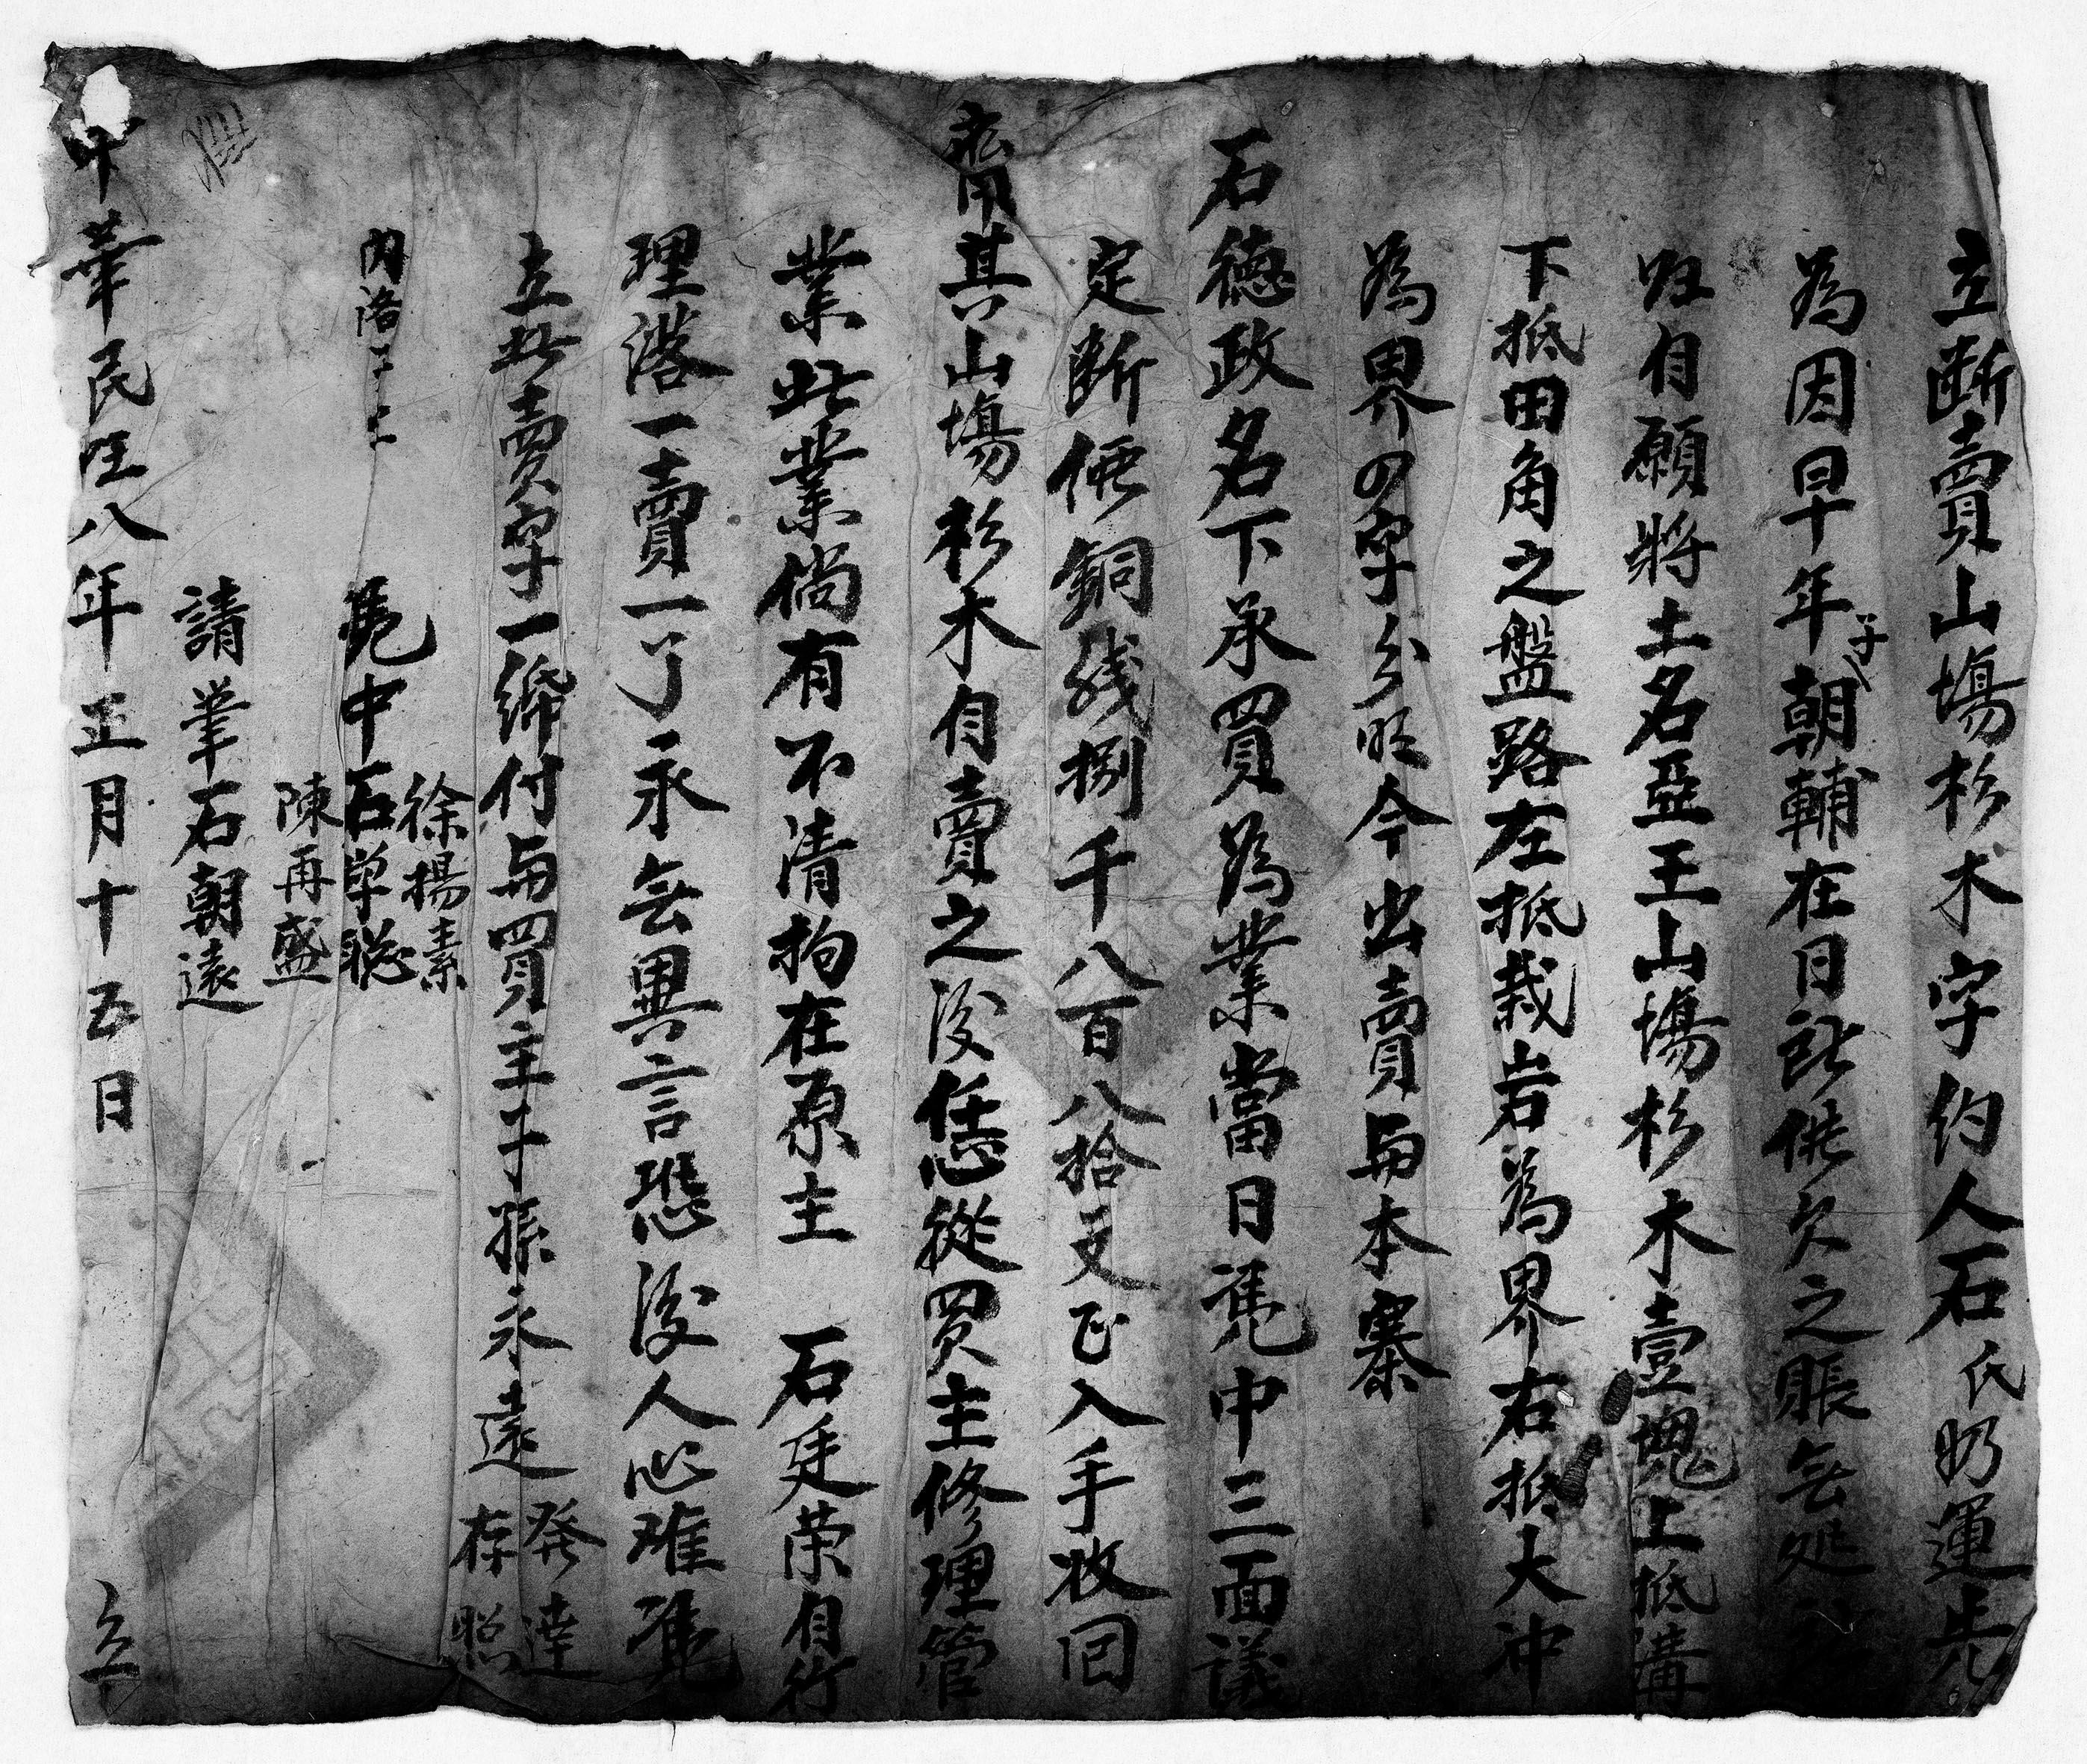 立断賣山塲杉木字约人石氏奶運
為因早年子朝輔在日所供欠之賬無处
自願將土名亞王山塲杉木壹塊上抵溝
下抵田角之盤路左抵栽岩為界右抵大冲
為界四字分明今出賣與本寨
石德政名下承買為業當日凴中三面議
定断價銅錢捌千八百八拾文正入手收回
應用其山塲杉木自賣之後任從買主修理管
業此業倘有不清拘在原主石廷荣自行
理落一賣一了永無異言恐後人心难凴
立此賣字一紙付與買主子孫永遠發達存照
内添子字
徐揚素
凴中石学聪
陳再盛
請筆石朝遠
中華民国八年正月十五日立